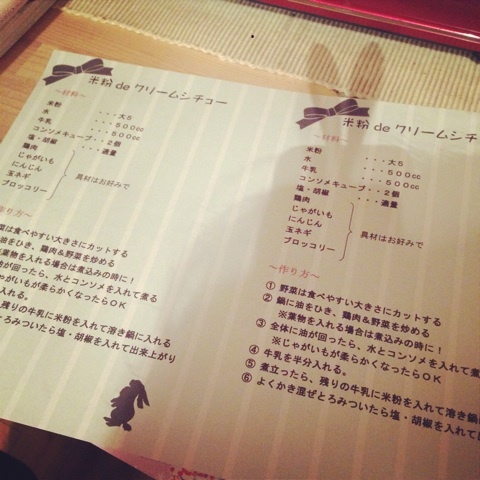 米粉 de クリームシチュー
～材料～
米粉 ・・・大5
水 ・・・500cc
牛乳 ・・・500cc
コンソメキューブ・・2個
塩・胡椒 ・・・適量
鶏肉
じゃがいも
にんじん
玉ネギ
ブロッコリー
具材はお好みで
作り方～
菜は食べやすい大きさにカットする
油をひき、鶏肉＆野菜を炒める
葉物を入れる場合は煮込みの時に！
油が回ったら、水とコンソメを入れて煮る
じゃがいもが柔らかくなったらOK
入れる。
、残りの牛乳に米粉を入れて溶き鍋に入れる
とろみついたら塩・胡椒を入れて出来上がり
米粉 de クリームシチ
～材料～
米粉 ・・・大5
水 ・・・500cc
牛乳 ・・・500cc
コンソメキューブ・・2個
塩・胡椒 ・・・適量
鶏肉
じゃがいも
にんじん
玉ネギ
ブロッコリー
具材はお好みで
～作り方～
① 野菜は食べやすい大きさにカットする
② 鍋に油をひき、鶏肉＆野菜を炒める
※葉物を入れる場合は煮込みの時に！
③ 全体に油が回ったら、水とコンソメを入れて煮
※じゃがいもが柔らかくなったらOK
④ 牛乳を半分入れる。
⑤ 煮立ったら、残りの牛乳に米粉を入れて溶き鍋に
⑥ よくかき混ぜとろみついたら塩・胡椒を入れて